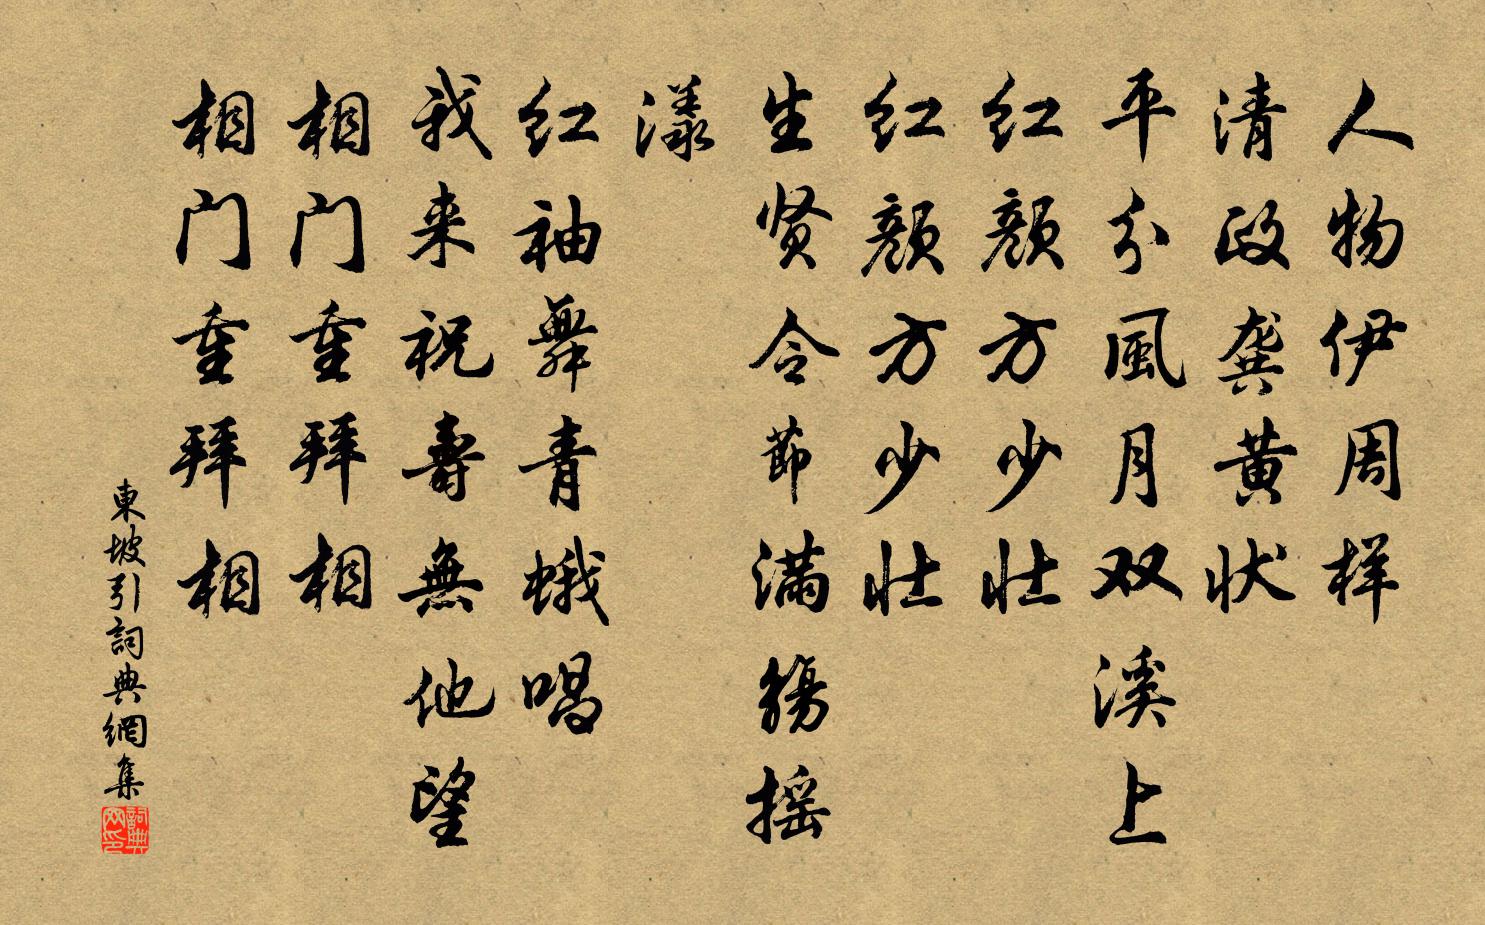 人物伊周样
清政龚黄状
平分風月双溪上
红颜方少壮
红颜方少壮
生贤令節满觴摇
漾
红袖舞青蛾唱
我来祝壽無他望
相门重拜相
相门重拜相
東坡引詞典網集
詞典网印